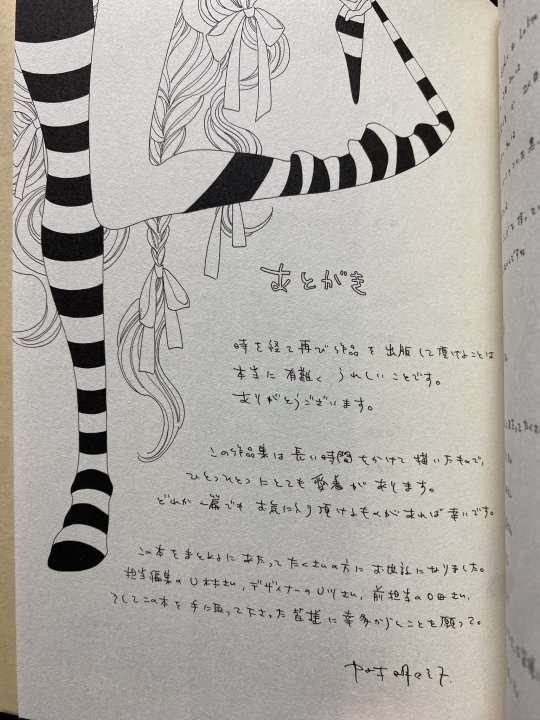 あとがき
時を経て再び作品を出版して頂けることは
本当に有難く うれしいことです。
ありがとうございます。
この作品集は長い時間をかけて描いたもので、
ひとつひとつにとても愛着があります。
どれか一篇でもお気に入り頂けるものがあれば幸いです。
この本をまとめるにあたってたくさんの方にお世話になりました。
担当編集のU村さん、デザイナーのU川さん、前担当のO田さん、
そしてこの本を手に取って下さった皆様に幸多からんことを願って。